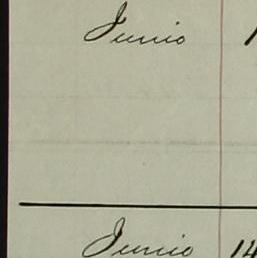 Junio
Junio 14